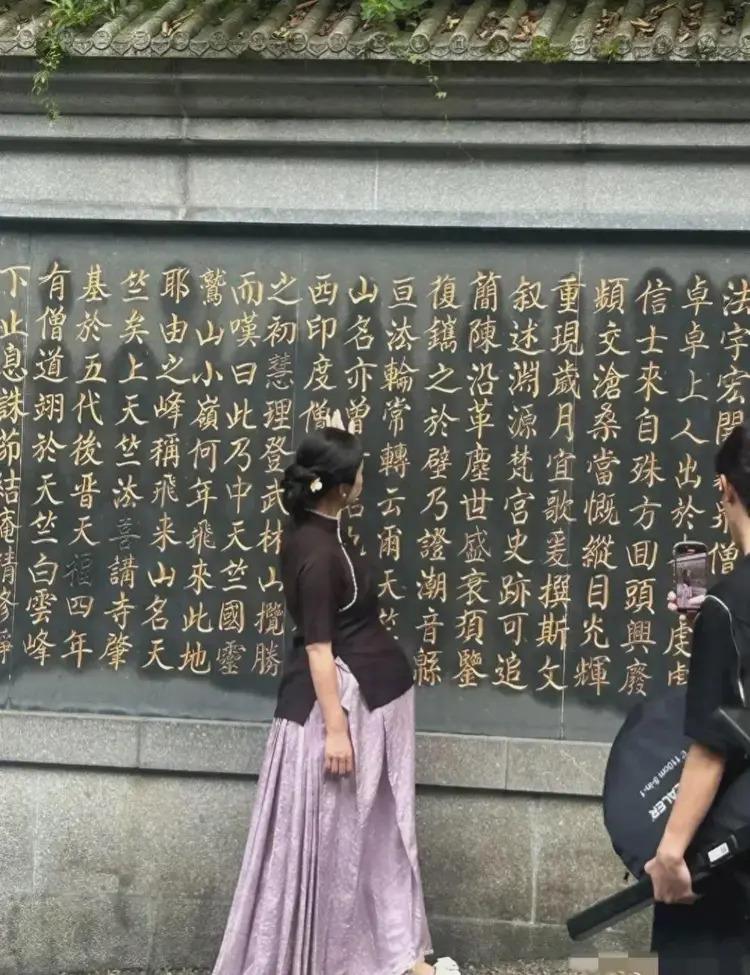 法宇宏開
卓卓上人出於
信士來自殊方回頭興廢
頻交滄桑當慨縱目光輝
重現歲月宜歌爰撰斯文
叙述淵源梵宮史跡可追
簡陳沿革塵世盛衰須鑒
復鐫之於壁乃證潮音縣
亘法輪常轉云爾天竺
山名亦
西印度僧
之初慧理登武林山攬勝
而嘆曰此乃中天竺國靈
鷲山小嶺何年飛來此地
耶由之峰稱飛來山名天
竺矣上天竺法善講寺肇
基於五代後晋天福四年
有僧道翊於天竺白雲峰
下止息誅茆結庵修
110cm 8-in-1